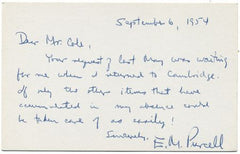 September 6, 1954
Dear Mr. Cole,
Your request of last May was waiting
for me when I returned to Cambridge.
If only the other items that have
accumulated in my absence could
be taken care of as easily!
Sincerely,
E. M. Purcell